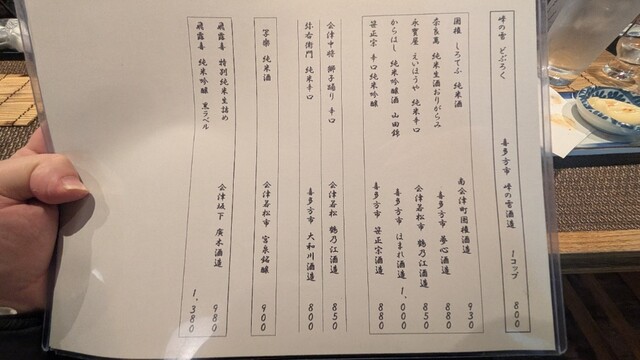 峰の雪 どぶろく 喜多方市 峰の雪酒造 1コップ 800
囲 しろてふ 純米酒 南会津町 酒造 930
奈良萬 純米生酒おりがらみ 喜多方市 夢心酒造 880
永寶屋 えいほうや 純米辛口 会津若松市 鶴乃江酒造 850
からはし 純米吟醸酒 山田錦 喜多方市 ほまれ酒造 1,000
笹正宗 辛口純米吟醸 喜多方市 笹正宗酒造 880
会津中将 獅子踊り 辛口 会津若松 鶴乃江酒造 850
弥右衛門 純米辛口 喜多方市 大和川酒造 800
写楽 純米酒 会津若松市 宮泉銘醸 900
飛露喜 特別純米生詰め 会津坂下 廣木酒造 980
飛露喜 純米吟醸 黒ラベル 1,380